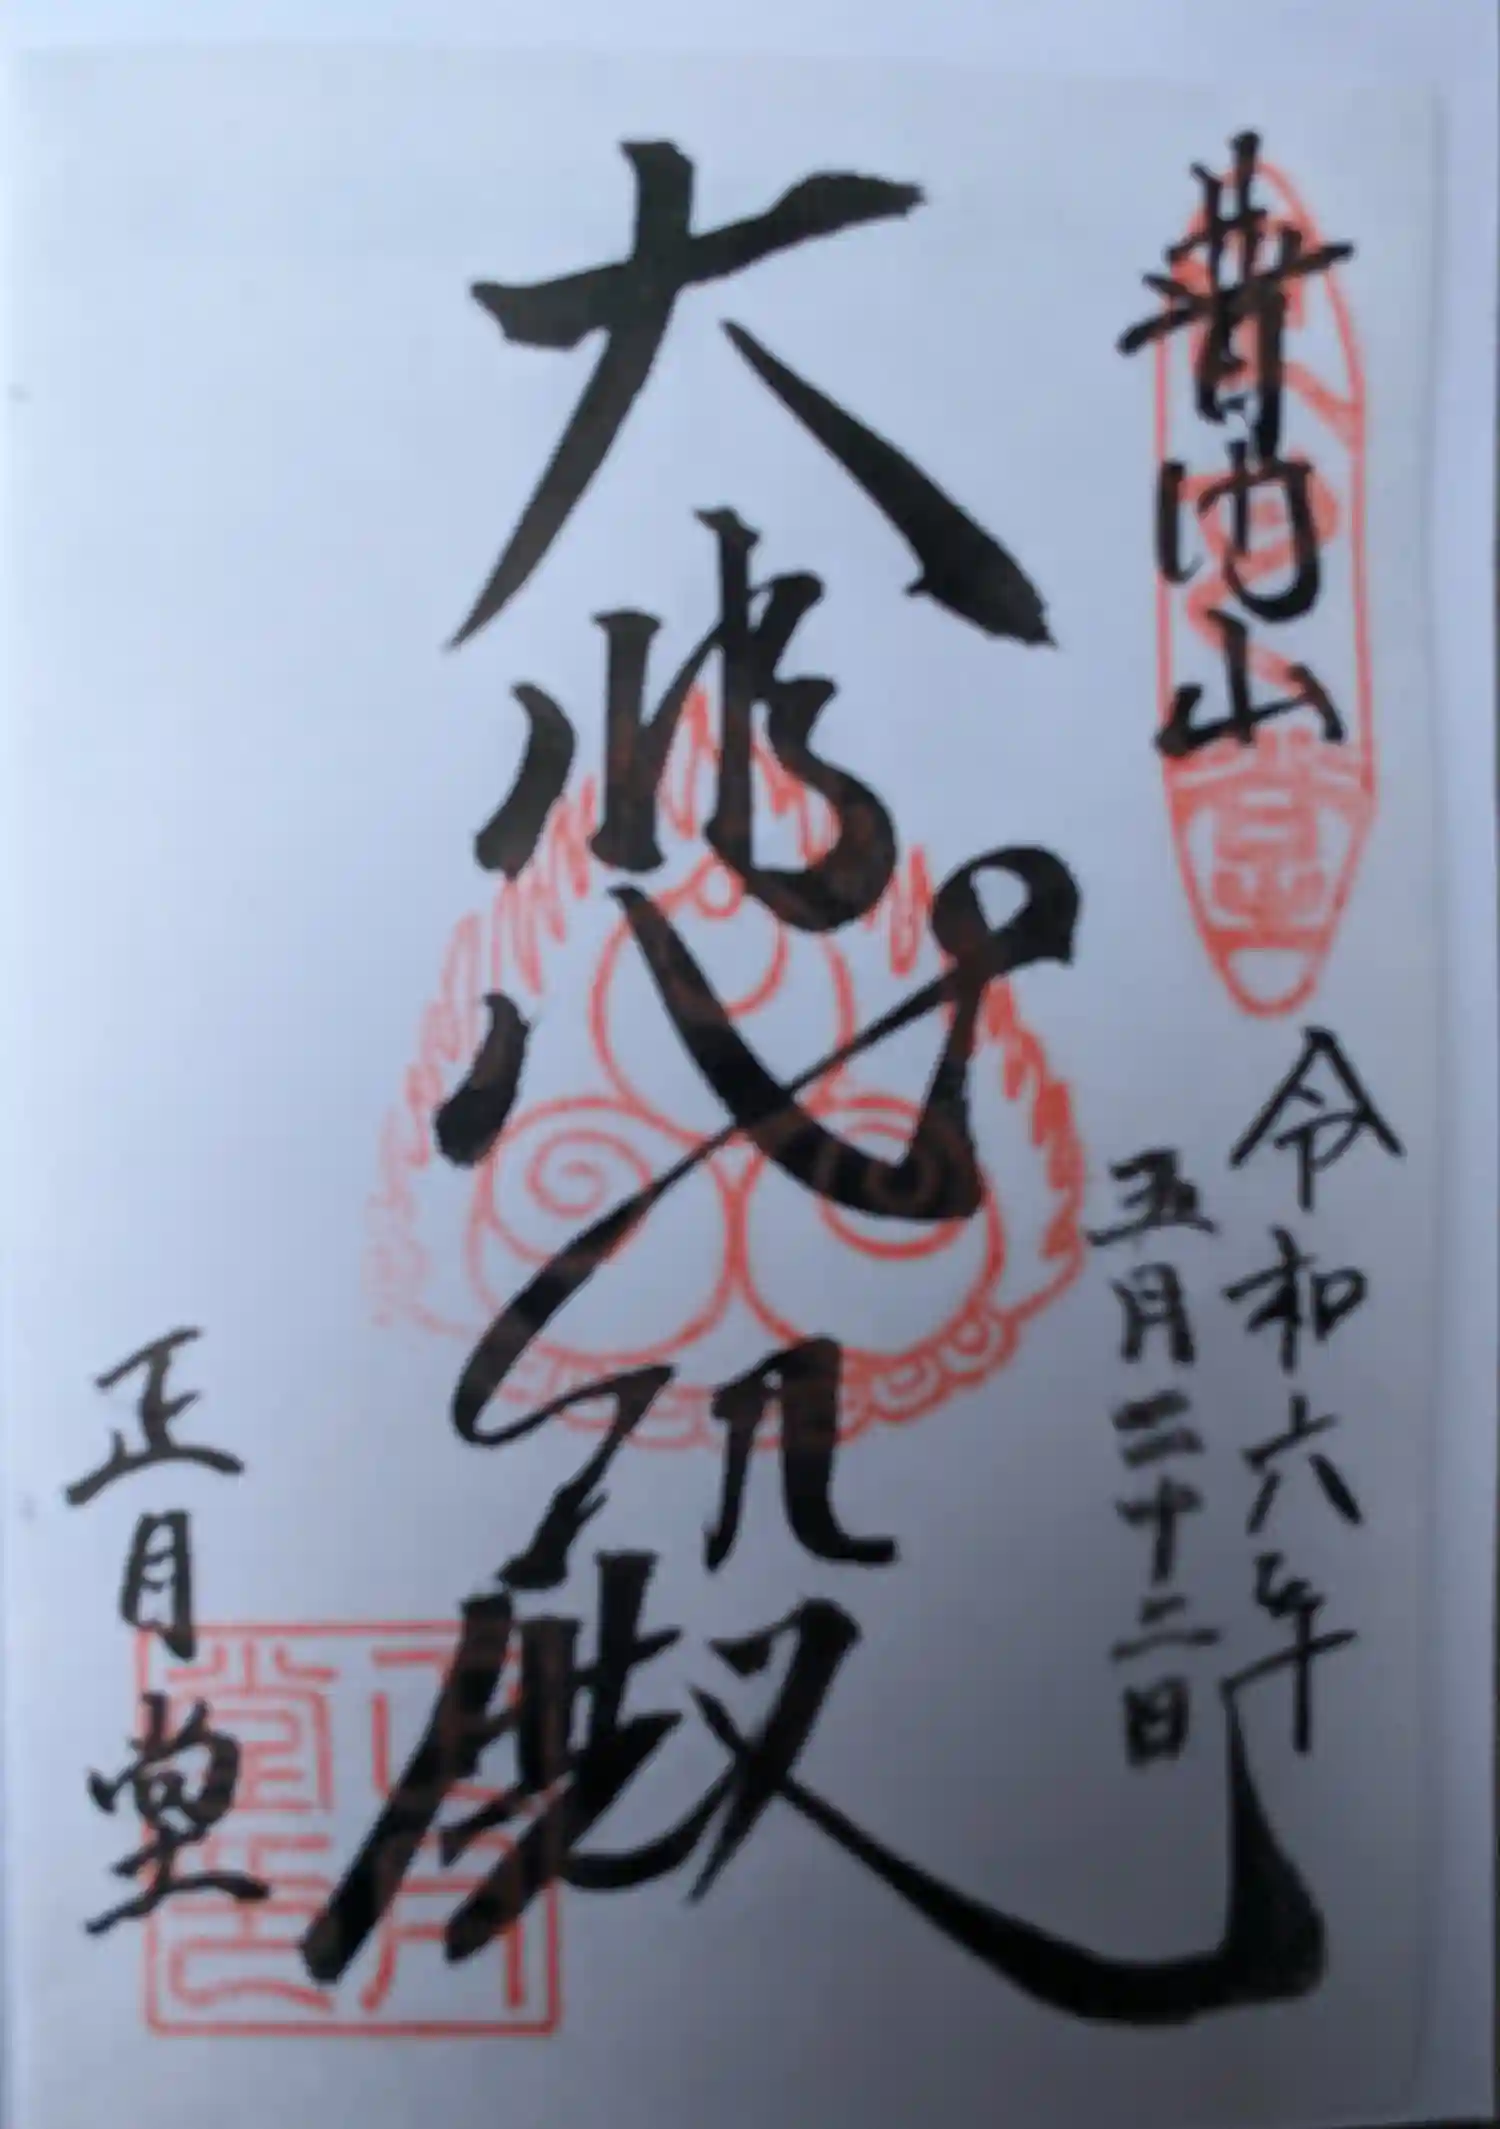 普門山
令和六年
五月二十二日
大悲殿
正月堂
正月堂印